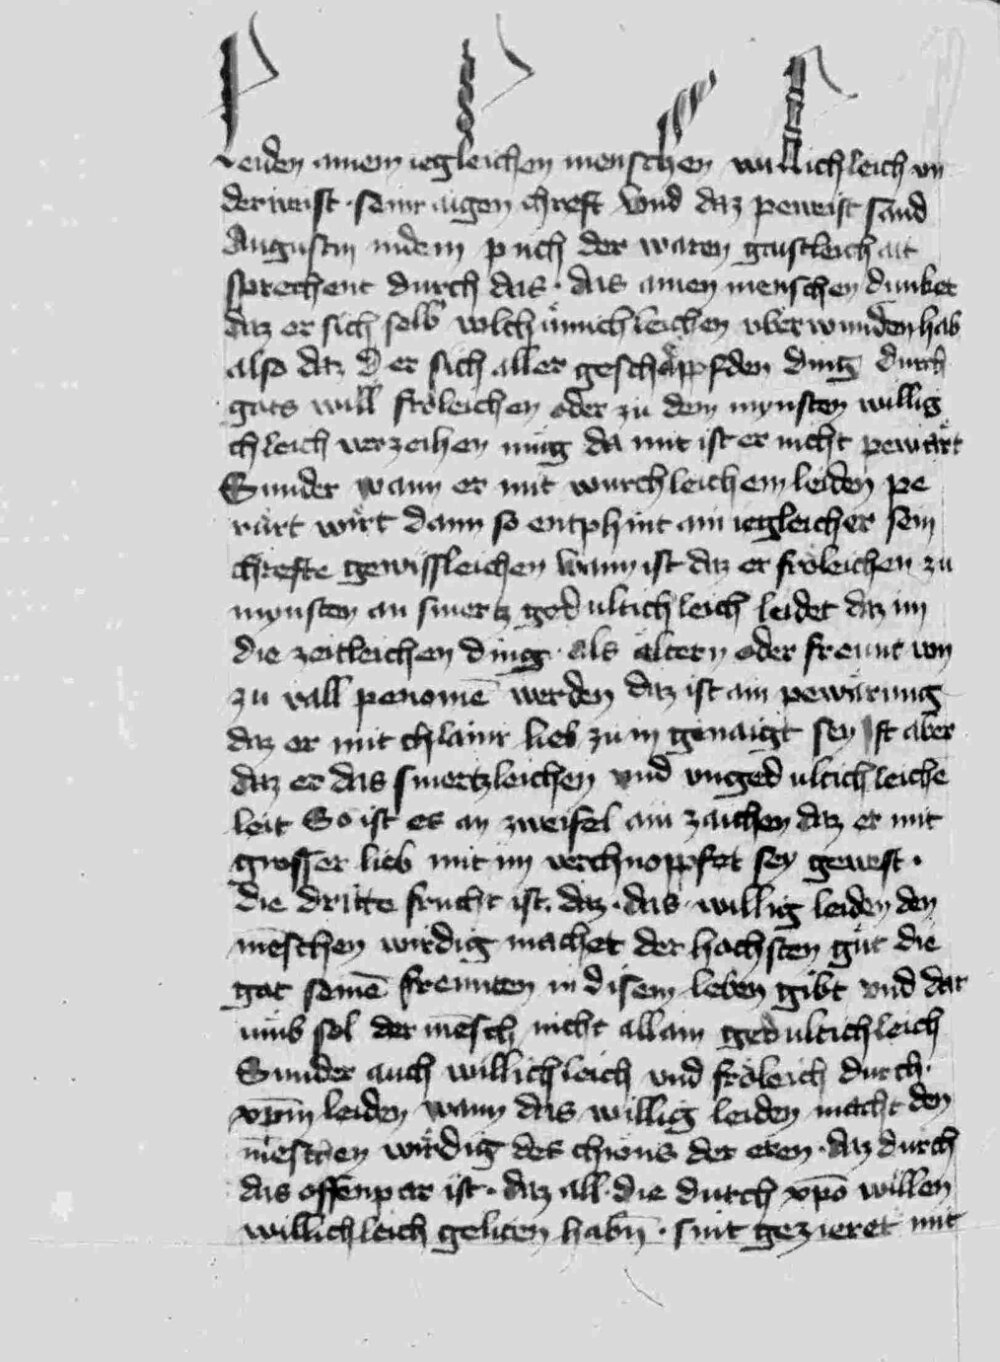 Leiden ainem iegleichen menschen willichleich vn
derweist seinr aigen chreft Vnd daz peweist sand
Augustin indem puch der waren gaistleichait
sprechent durch das. das ainen menschen dunket
daz er sich selb volchümichleichen vberwunden hab
also daz er sich aller geschöppfden ding durch
gots will fröleichen oder zu dem mynsten willig
chleich verzeihen müg da mit ist er nicht pewärt
Sunder wann er mit würchleichem leiden pe
rürt wirt dann so entphint ain iegleicher sein
chrefte gewissleichen wann ist daz er fröleichen zu
mynsten an smertz gedultichleich leidet daz im
die zeitleichen ding. als ältern oder freunt von
zu vall penomē werden daz ist ain pewärung
daz er mit chlainr lieb zu in genaigt sey Ist aber
daz er das smertzleichen vnd vngedultichleichē
leit So ist es an zweifel ain zaichen daz er mit
grosser lieb mit im verchnoppfet sey gewest.
die dritte frucht ist. daz. das willig leiden den
mēschen wirdig machet der höchsten güt die
got seinē freunten in disem leben gibt vnd dar
umb sol der mēsch nicht allain gedultichleich
Sunder auch willichleich vnd fröleich durch.
xp̄m leiden wann das willig leiden macht den
mēschen wirdig der chrons der eren. daz durch
das offenpar ist. daz all. die durch xp̄o willen
willichleich geliten habn̄. sint gezieret mit